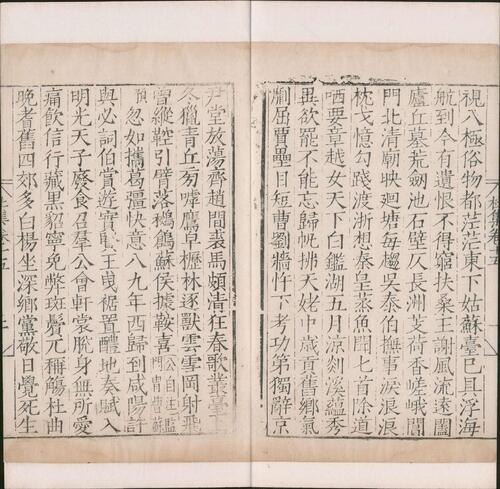 視八極俗物都茫茫東下姑蘇臺已具浮海
航到今有遺恨不得窮扶桑王謝風流遠闔
廬丘墓荒劒池石壁仄長洲芰荷香嵯峨閶
門北清廟映廻塘每趨吳泰伯撫事淚浪浪
枕戈憶勾踐渡浙想秦皇蒸魚聞匕首除道
哂要章越女天下白鑑湖五月涼剡溪蘊秀
異欲罷不能忘歸帆拂天姥中歲貢舊鄉氣
劘屈賈壘目短曹劉牆忤下考功第獨辭京
尹堂放蕩齊趙間裘馬頗清狂春歌叢臺上
冬獵青丘旁嘑鷹皁櫪林逐獸雲雪岡射飛
曾縱鞚引臂落鶖鶬蘇侯據鞍喜公自注監門胄曹蘇
預忽如攜葛彊快意八九年西歸到咸陽許
與必詞伯賞遊實賢王曳裾置醴地奏賦入
明光天子廢食召羣公會軒裳脫身無所愛
痛飲信行藏黑貂寧免弊斑鬢兀稱觴杜曲
晚耆舊四郊多白楊坐深鄉黨敬日覺死生